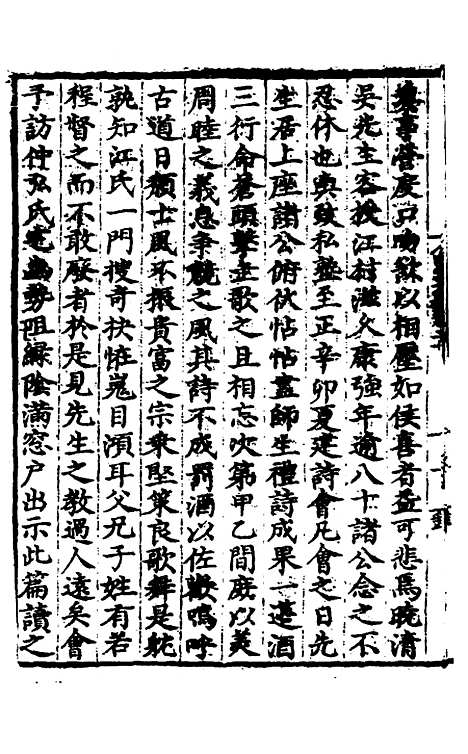 營度只與穌以相壓如侯喜者益可悲焉晚清
吳先生客授江村滋久康強年逾八十諸公念之不
忍休也與致私塾至正辛卯夏建詩會凡會之日先
坐居上座諸公俯伏怗怗盡師生禮詩成果一蓮酒
三行命蒼頭擊走歌之且相忘次第甲乙間庶以美
周睦之義息爭競之風其詩不成罰酒以佐歡嗚呼
古道日頹士風不振貴富之宗乘堅策良歌舞是躭
孰知江氏一門搜奇抉怪嵬目澒耳父兄子姓有若
程督之而不敢廢者於是見先生之教過人遠矣會
予訪仲弘氏幽勢阻綠陰滿窓戶出示此篇讀之